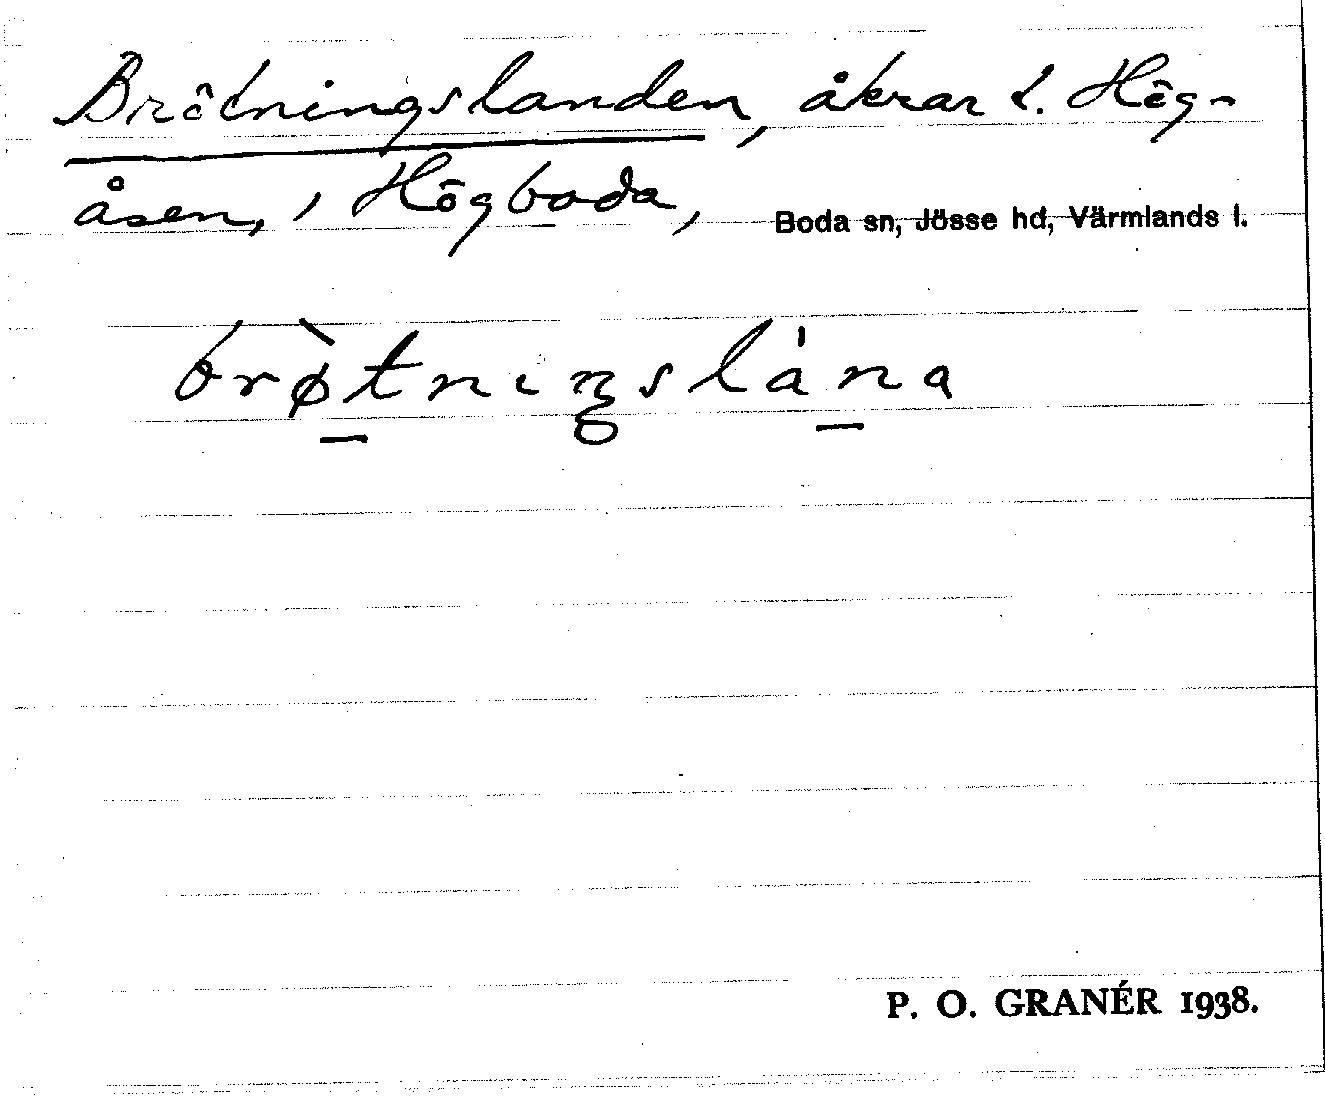 Brötningslanden, åkrar t. Hög-
åsen, i Högboda, Boda sn, Jösse hd, Värmlands l.
brø̀tniŋslána
P. O. GRANÉR 1938.